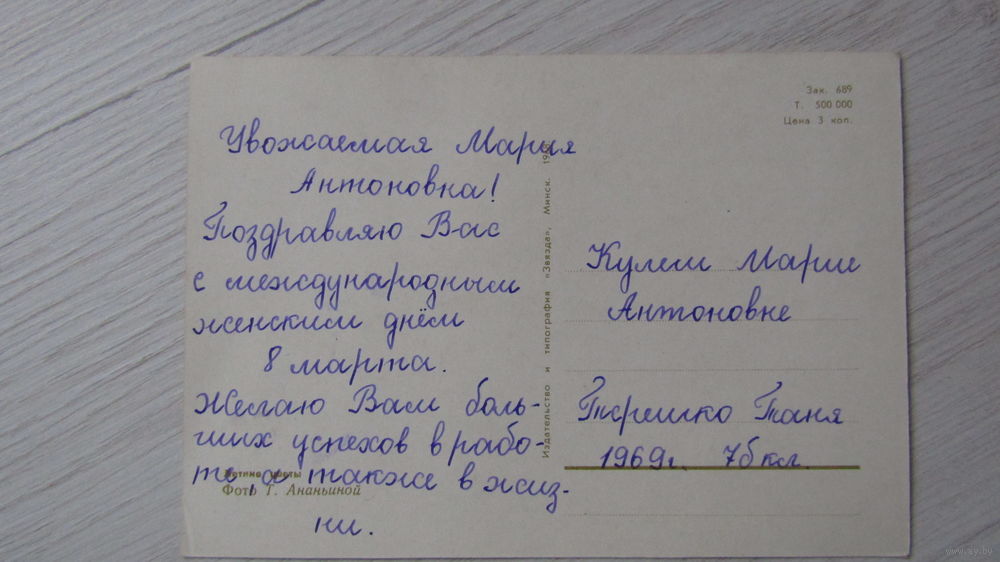 Зак. 689
Т. 500 000
Цена 3 коп.
Уважаемая Мария
Антоновна!
Поздравляю Вас
с международным
женским днём
8 марта.
Желаю Вам боль-
ших успехов в рабо-
те, а также в жиз-
ни.
цветы
Фото Т. Ананьиной
Издательство и типография «Звязда», Минск.
Марие
Антоновне
Таня
1969г. 7б кл.
www.ay.by